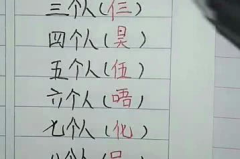 三个人(仨)
四个人(昊)
五个人(伍)
六个人(唔)
七个人(化)
八个人